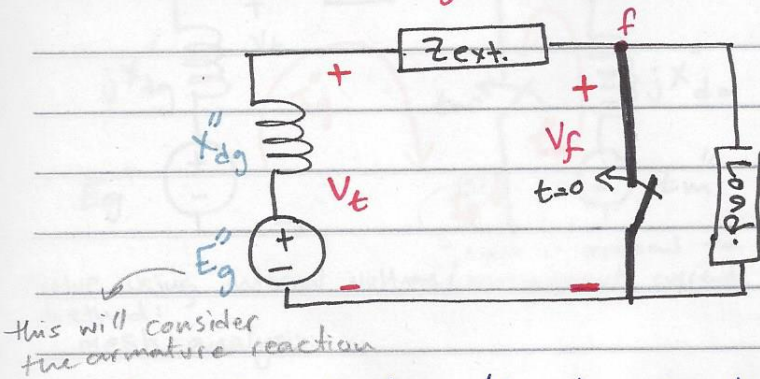 f
+
Z ext.
+
X"dg
Vf
t=0
Load.
Vt
+
E"g
−
−
−
this will consider
the armature reaction